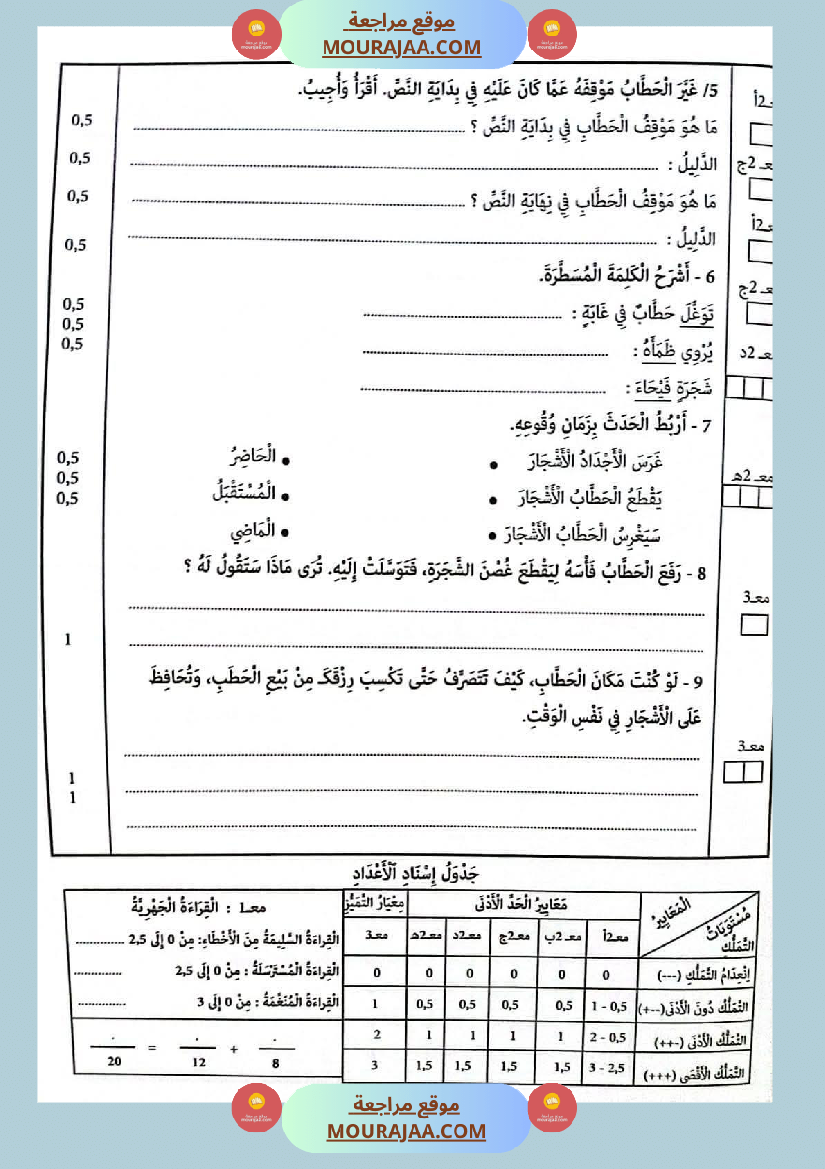 موقع مراجعة
MOURAJAA.COM
5/ غَيَّرَ الْحَطَّابُ مَوْقِفَهُ عَمَّا كَانَ عَلَيْهِ فِي بِدَايَةِ النَّصِّ. أَقْرَأُ وَأُجِيبُ.
معـ2أ
مَا هُوَ مَوْقِفُ الْحَطَّابِ فِي بِدَايَةِ النَّصِّ ؟ ........................ 0,5
معـ2ج
الدَّلِيلُ : ........................ 0,5
مَا هُوَ مَوْقِفُ الْحَطَّابِ فِي نِهَايَةِ النَّصِّ ؟ ........................ 0,5
معـ2أ
الدَّلِيلُ : ........................ 0,5
6 - أَشْرَحُ الْكَلِمَةَ الْمُسَطَّرَةَ.
معـ2ج
تَوَغَّلَ حَطَّابٌ فِي غَابَةٍ : ........................ 0,5
0,5
يُرْوِي ظَمَأَهُ : ........................ 0,5
معـ2د
شَجَرَةٍ فَيْحَاءَ : ........................
7 - أَرْبُطُ الْحَدَثَ بِزَمَانِ وُقُوعِهِ.
غَرَسَ الْأَجْدَادُ الْأَشْجَارَ • • الْحَاضِرُ 0,5
معـ2هـ
يَقْطَعُ الْحَطَّابُ الْأَشْجَارَ • • الْمُسْتَقْبَلُ 0,5
0,5
سَيَغْرِسُ الْحَطَّابُ الْأَشْجَارَ • • الْمَاضِي
8 - رَفَعَ الْحَطَّابُ فَأْسَهُ لِيَقْطَعَ غُصْنَ الشَّجَرَةِ، فَتَوَسَّلَتْ إِلَيْهِ. تُرَى مَاذَا سَتَقُولُ لَهُ ؟
معـ3
........................
........................ 1
9 - لَوْ كُنْتَ مَكَانَ الْحَطَّابِ، كَيْفَ تَتَصَرَّفُ حَتَّى تَكْسِبَ رِزْقَكَ مِنْ بَيْعِ الْحَطَبِ، وَتُحَافِظَ
عَلَى الْأَشْجَارِ فِي نَفْسِ الْوَقْتِ.
معـ3
........................
........................ 1
1
........................
جَدْوَلُ إِسْنَادِ الْأَعْدَادِ
الْمَعَايِيرُ
مُسْتَوَيَاتُ التَّمَلُّكِ
مَعَايِيرُ الْحَدِّ الْأَدْنَى
مِعْيَارُ التَّمَيُّزِ
معـ2أ معـ2ب معـ2ج معـ2د معـ2هـ معـ3
اِنْعِدَامُ التَّمَلُّكِ (---) 0 0 0 0 0 0
التَّمَلُّكُ دُونَ الْأَدْنَى (--+) 0,5 - 1 0,5 0,5 0,5 0,5 1
التَّمَلُّكُ الْأَدْنَى (-++) 0,5 - 2 1 1 1 1 2
التَّمَلُّكُ الْأَقْصَى (+++) 2,5 - 3 1,5 1,5 1,5 1,5 3
معـ1 : الْقِرَاءَةُ الْجَهْرِيَّةُ
الْقِرَاءَةُ السَّلِيمَةُ مِنَ الْأَخْطَاءِ: مِنْ 0 إِلَى 2,5 ............
الْقِرَاءَةُ الْمُسْتَرْسَلَةُ : مِنْ 0 إِلَى 2,5 ............
الْقِرَاءَةُ الْمُنَغَّمَةُ : مِنْ 0 إِلَى 3 ............
. . .
— = — + —
20 12 8
موقع مراجعة
MOURAJAA.COM